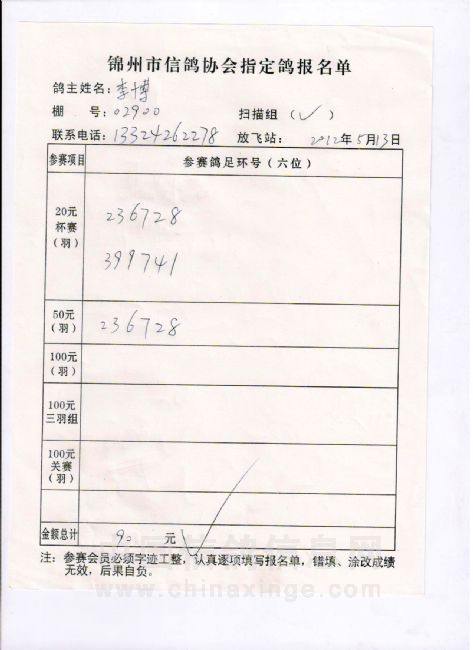 锦州市信鸽协会指定鸽报名单
鸽主姓名：李博
棚 号：02900 扫描组（✓）
联系电话：13324262278 放飞站： 2012年5月13日
参赛项目 参赛鸽足环号（六位）
20元
杯赛
（羽）
236728
399741
50元
（羽）
236728
100元
（羽）
100元
三羽组
100元
关赛
（羽）
金额总计 90 元
注：参赛会员必须字迹工整，认真逐项填写报名单，错填、涂改成绩
无效，后果自负。
www.chinaxinge.com